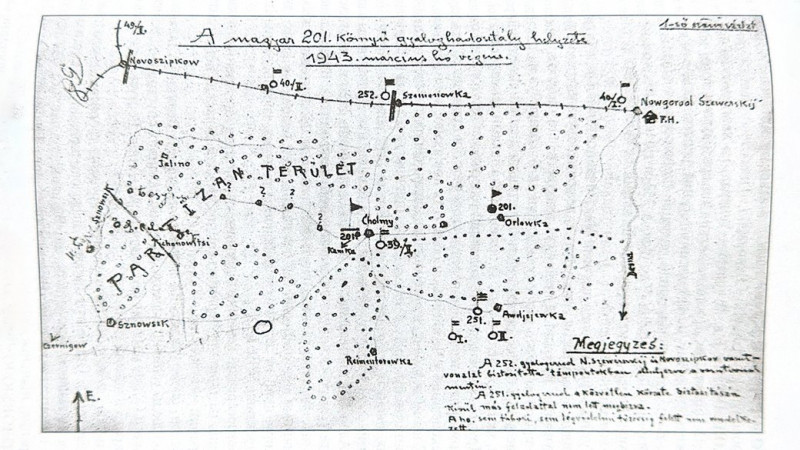 1-ső számú vázlat
A magyar 201. könnyű gyaloghadosztály helyzete
1943. március hó végén.
49/I.
Novoszipkow
40./II.
252.
Szemenowka
40/I.
Nowgorod Szewerskij
F.H.
Jalino
PARTIZÁN TERÜLET
?
?
?
?
Tichonowitsi
201.
Cholmy
Kamka
39./II.
201.
Orlowka
Desna
Sznowszk
Czernigow
251.
Awdjejewka
I.
II.
Reimentorowka
É.
Megjegyzés:
A 252. gyalogezred N.szewerszkij és Novoszipkov vasút-
vonalat biztosította támpontokban a vasútvonal
mentén.
A 251. gyalogezred a közvetlen körzete biztosításán
kívül más feladattal nem let megbízva.
A ho. sem tábori, sem légvédelmi tüzérség felett nem rendelke-
zett.